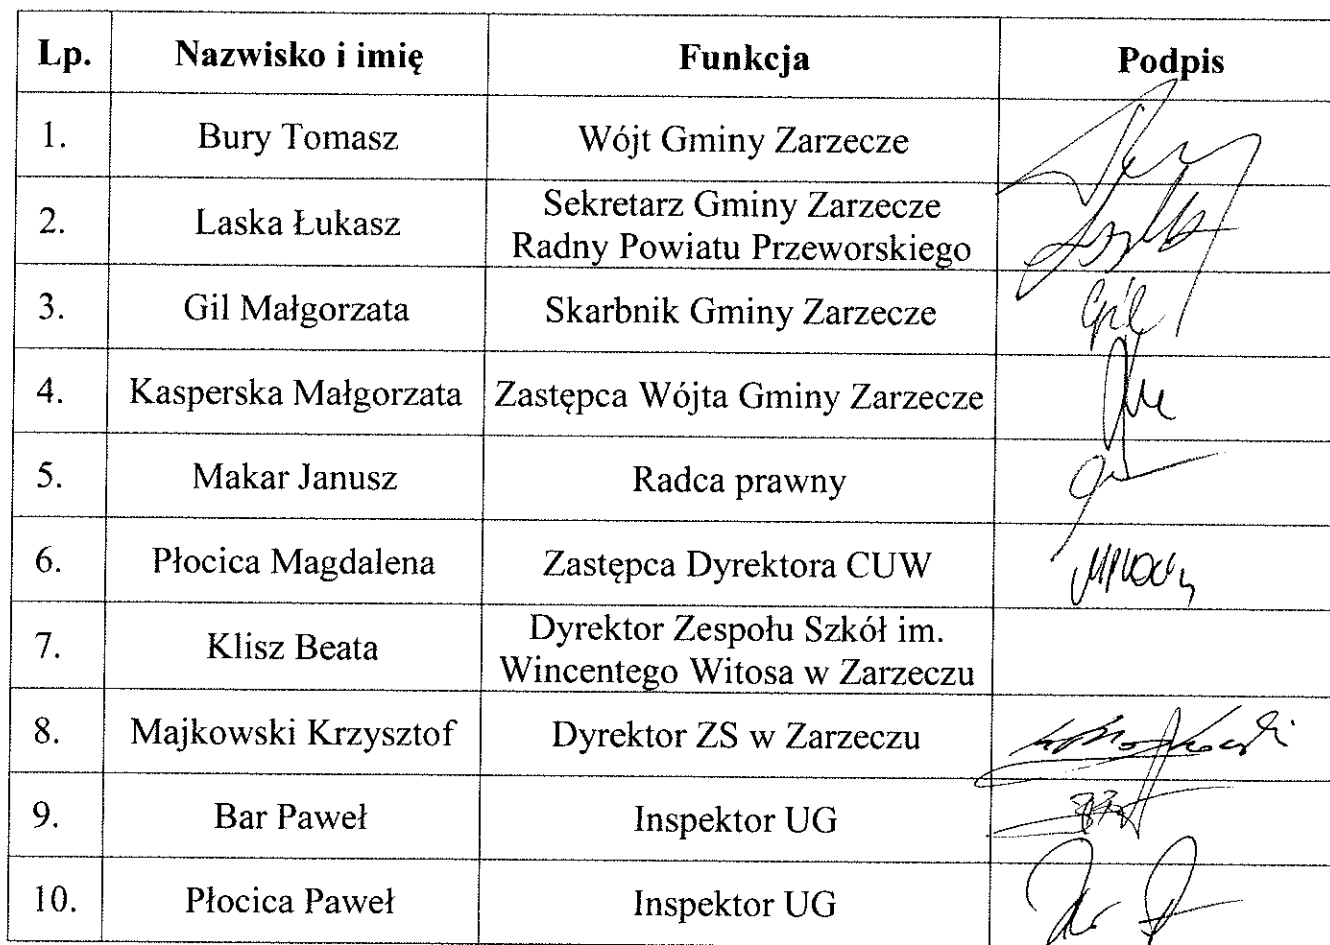 Lp. Nazwisko i imię Funkcja Podpis
1. Bury Tomasz Wójt Gminy Zarzecze
2. Laska Łukasz Sekretarz Gminy Zarzecze
Radny Powiatu Przeworskiego
3. Gil Małgorzata Skarbnik Gminy Zarzecze Gil
4. Kasperska Małgorzata Zastępca Wójta Gminy Zarzecze
5. Makar Janusz Radca prawny
6. Płocica Magdalena Zastępca Dyrektora CUW
7. Klisz Beata Dyrektor Zespołu Szkół im.
Wincentego Witosa w Zarzeczu
8. Majkowski Krzysztof Dyrektor ZS w Zarzeczu
9. Bar Paweł Inspektor UG
10. Płocica Paweł Inspektor UG